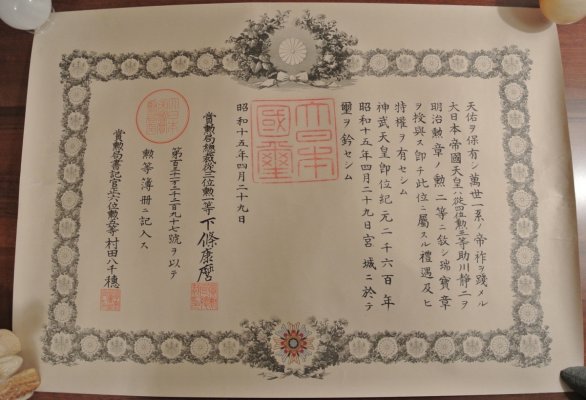 天佑ヲ保有シ萬世一系ノ帝祚ヲ踐メル
大日本帝國天皇ハ從四位勲三等助川靜二ヲ
明治勲章ノ勲二等ニ敍シ瑞寶章
ヲ授與ス卽チ此位ニ屬スル禮遇及ヒ
特權ヲ有セシム
神武天皇卽位紀元二千六百年
昭和十五年四月二十九日宮城ニ於テ
璽ヲ鈐セシム
大日本
國璽
昭和十五年四月二十九日
賞勲局總裁從三位勲一等下條康麿
第百三十二萬三千二百九十七號ヲ以テ
勲等簿册ニ記入ス
賞勲局書記官正六位勲五等村田八千穗